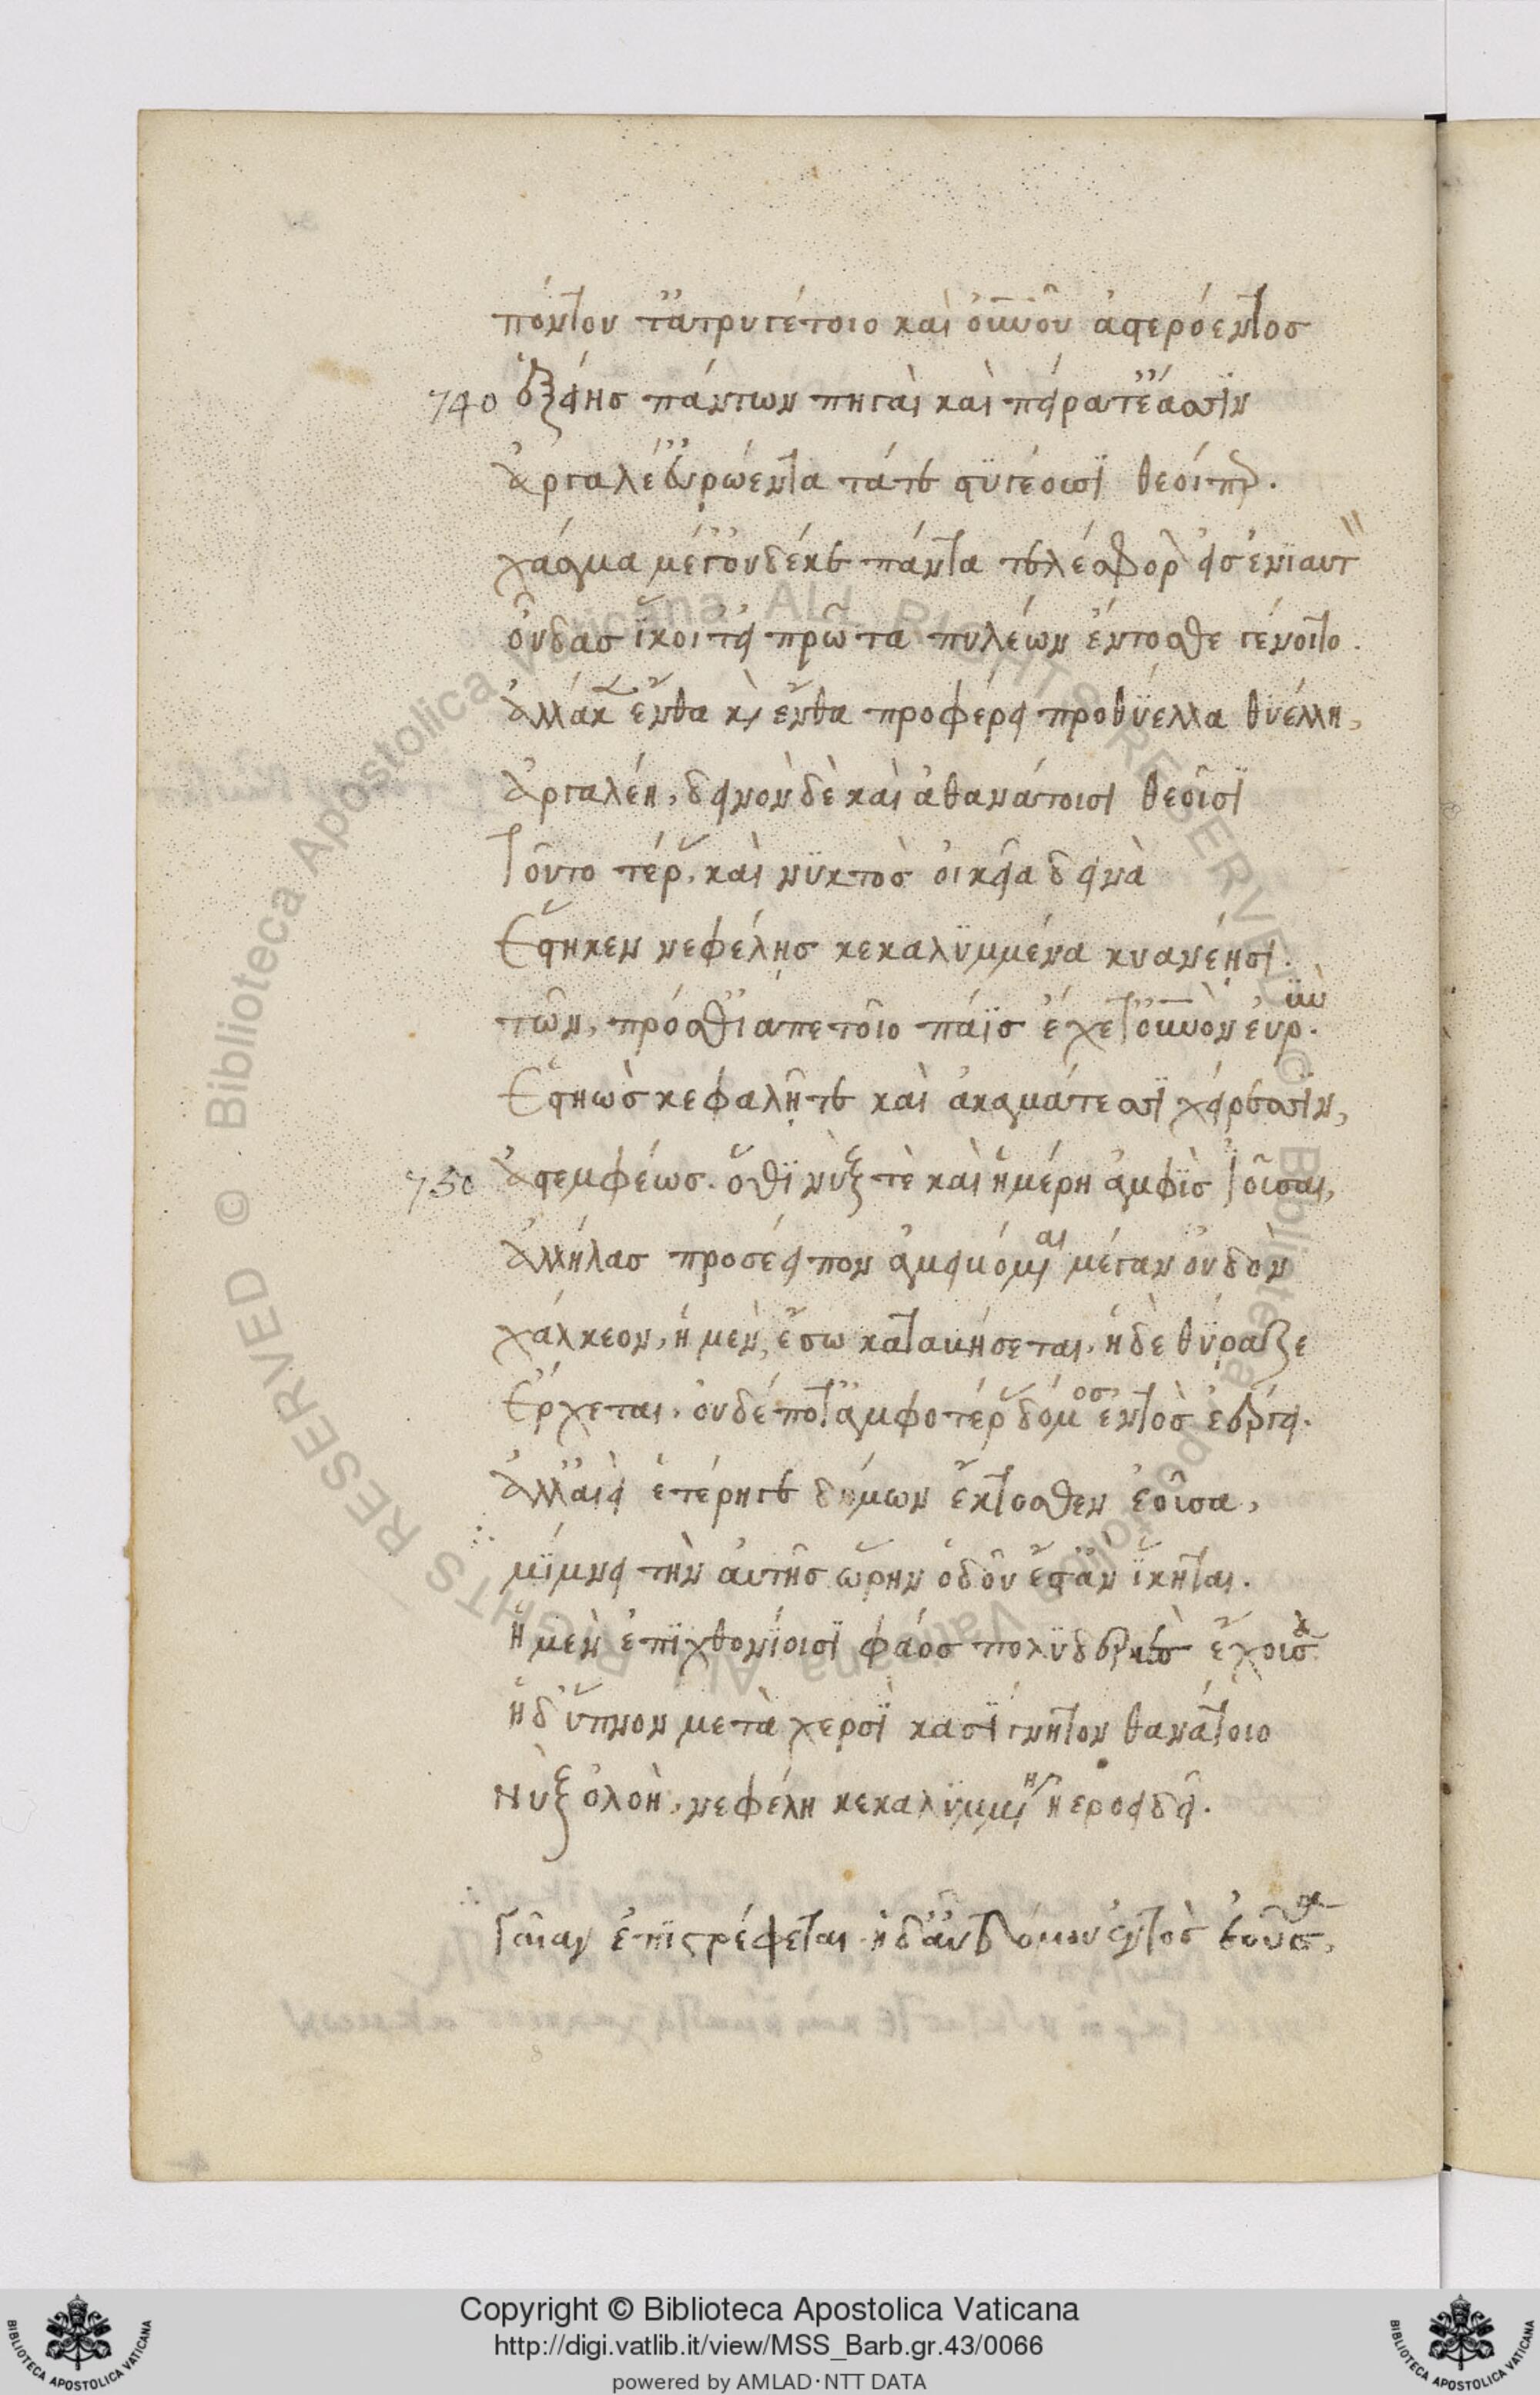 πόντου τ' ἀτρυγέτοιο καὶ οὐρανοῦ ἀστερόεντος
740 ἑξείης πάντων πηγαὶ καὶ πείρατ' ἔασιν
Ἀργαλέ' εὐρώεντα τάτε στυγέουσι θεοί περ.
χάσμα μέγ' οὐδέκε πάντα τελεσφόρον εἰς ἐνιαυτὸν
οὖδας ἵκοιτ' εἰ πρῶτα πυλέων ἔντοσθε γένοιτο.
Ἀλλά κεν ἔνθα καὶ ἔνθα προφέρει προθύελλα θυέλλη,
Ἀργαλέη, δεινὸν δὲ καὶ ἀθανάτοισι θεοῖσι
τοῦτο τέρας. καὶ νυκτὸς οἰκεῖα δεινὰ
Ἕστηκεν νεφέλης κεκαλυμμένα κυανέῃσι.
τῶν, πρόσθ' ἰαπετοῖο πάϊς ἔχετ' οὐρανὸν εὐρὺν.
Ἑστηὼς κεφαλῇ τε καὶ ἀκαμάτεσι χείρεσσιν,
750 Ἀστεμφέως. ὅθι νὺξ τὲ καὶ ἡμέρη ἀμφὶς ἰοῦσαι,
Ἀλλήλας προσέειπον ἀμειβόμεναι μέγαν οὐδὸν
χάλκεον, ἡ μὲν, ἔσω καταβήσεται, ἡ δὲ θύραζε
Ἔρχεται. οὐδέ ποτ' ἀμφοτέρας δόμος ἐντὸς ἐέργει.
Ἀλλ' αἰεὶ ἑτέρη γε δόμων ἔκτοσθεν ἐοῦσα,
μίμνει τὴν αὐτῆς ὥρην ὁδοῦ ἔστ' ἂν ἵκηται.
Ἡ μὲν ἐπιχθονίοισι φάος πολυδερκὲς ἔχουσα
ἡ δ' ὕπνον μετὰ χερσὶ κασίγνητον θανάτοιο
Νὺξ ὀλοὴ, νεφέλη κεκαλυμμένη ἠεροειδεῖ.
γαῖαν ἐπιστρέφεται. ἡ δ' αὖ δόμου ἐντὸς ἐοῦσα,
Copyright © Biblioteca Apostolica Vaticana
http://digi.vatlib.it/view/MSS_Barb.gr.43/0066
powered by AMLAD·NTT DATA